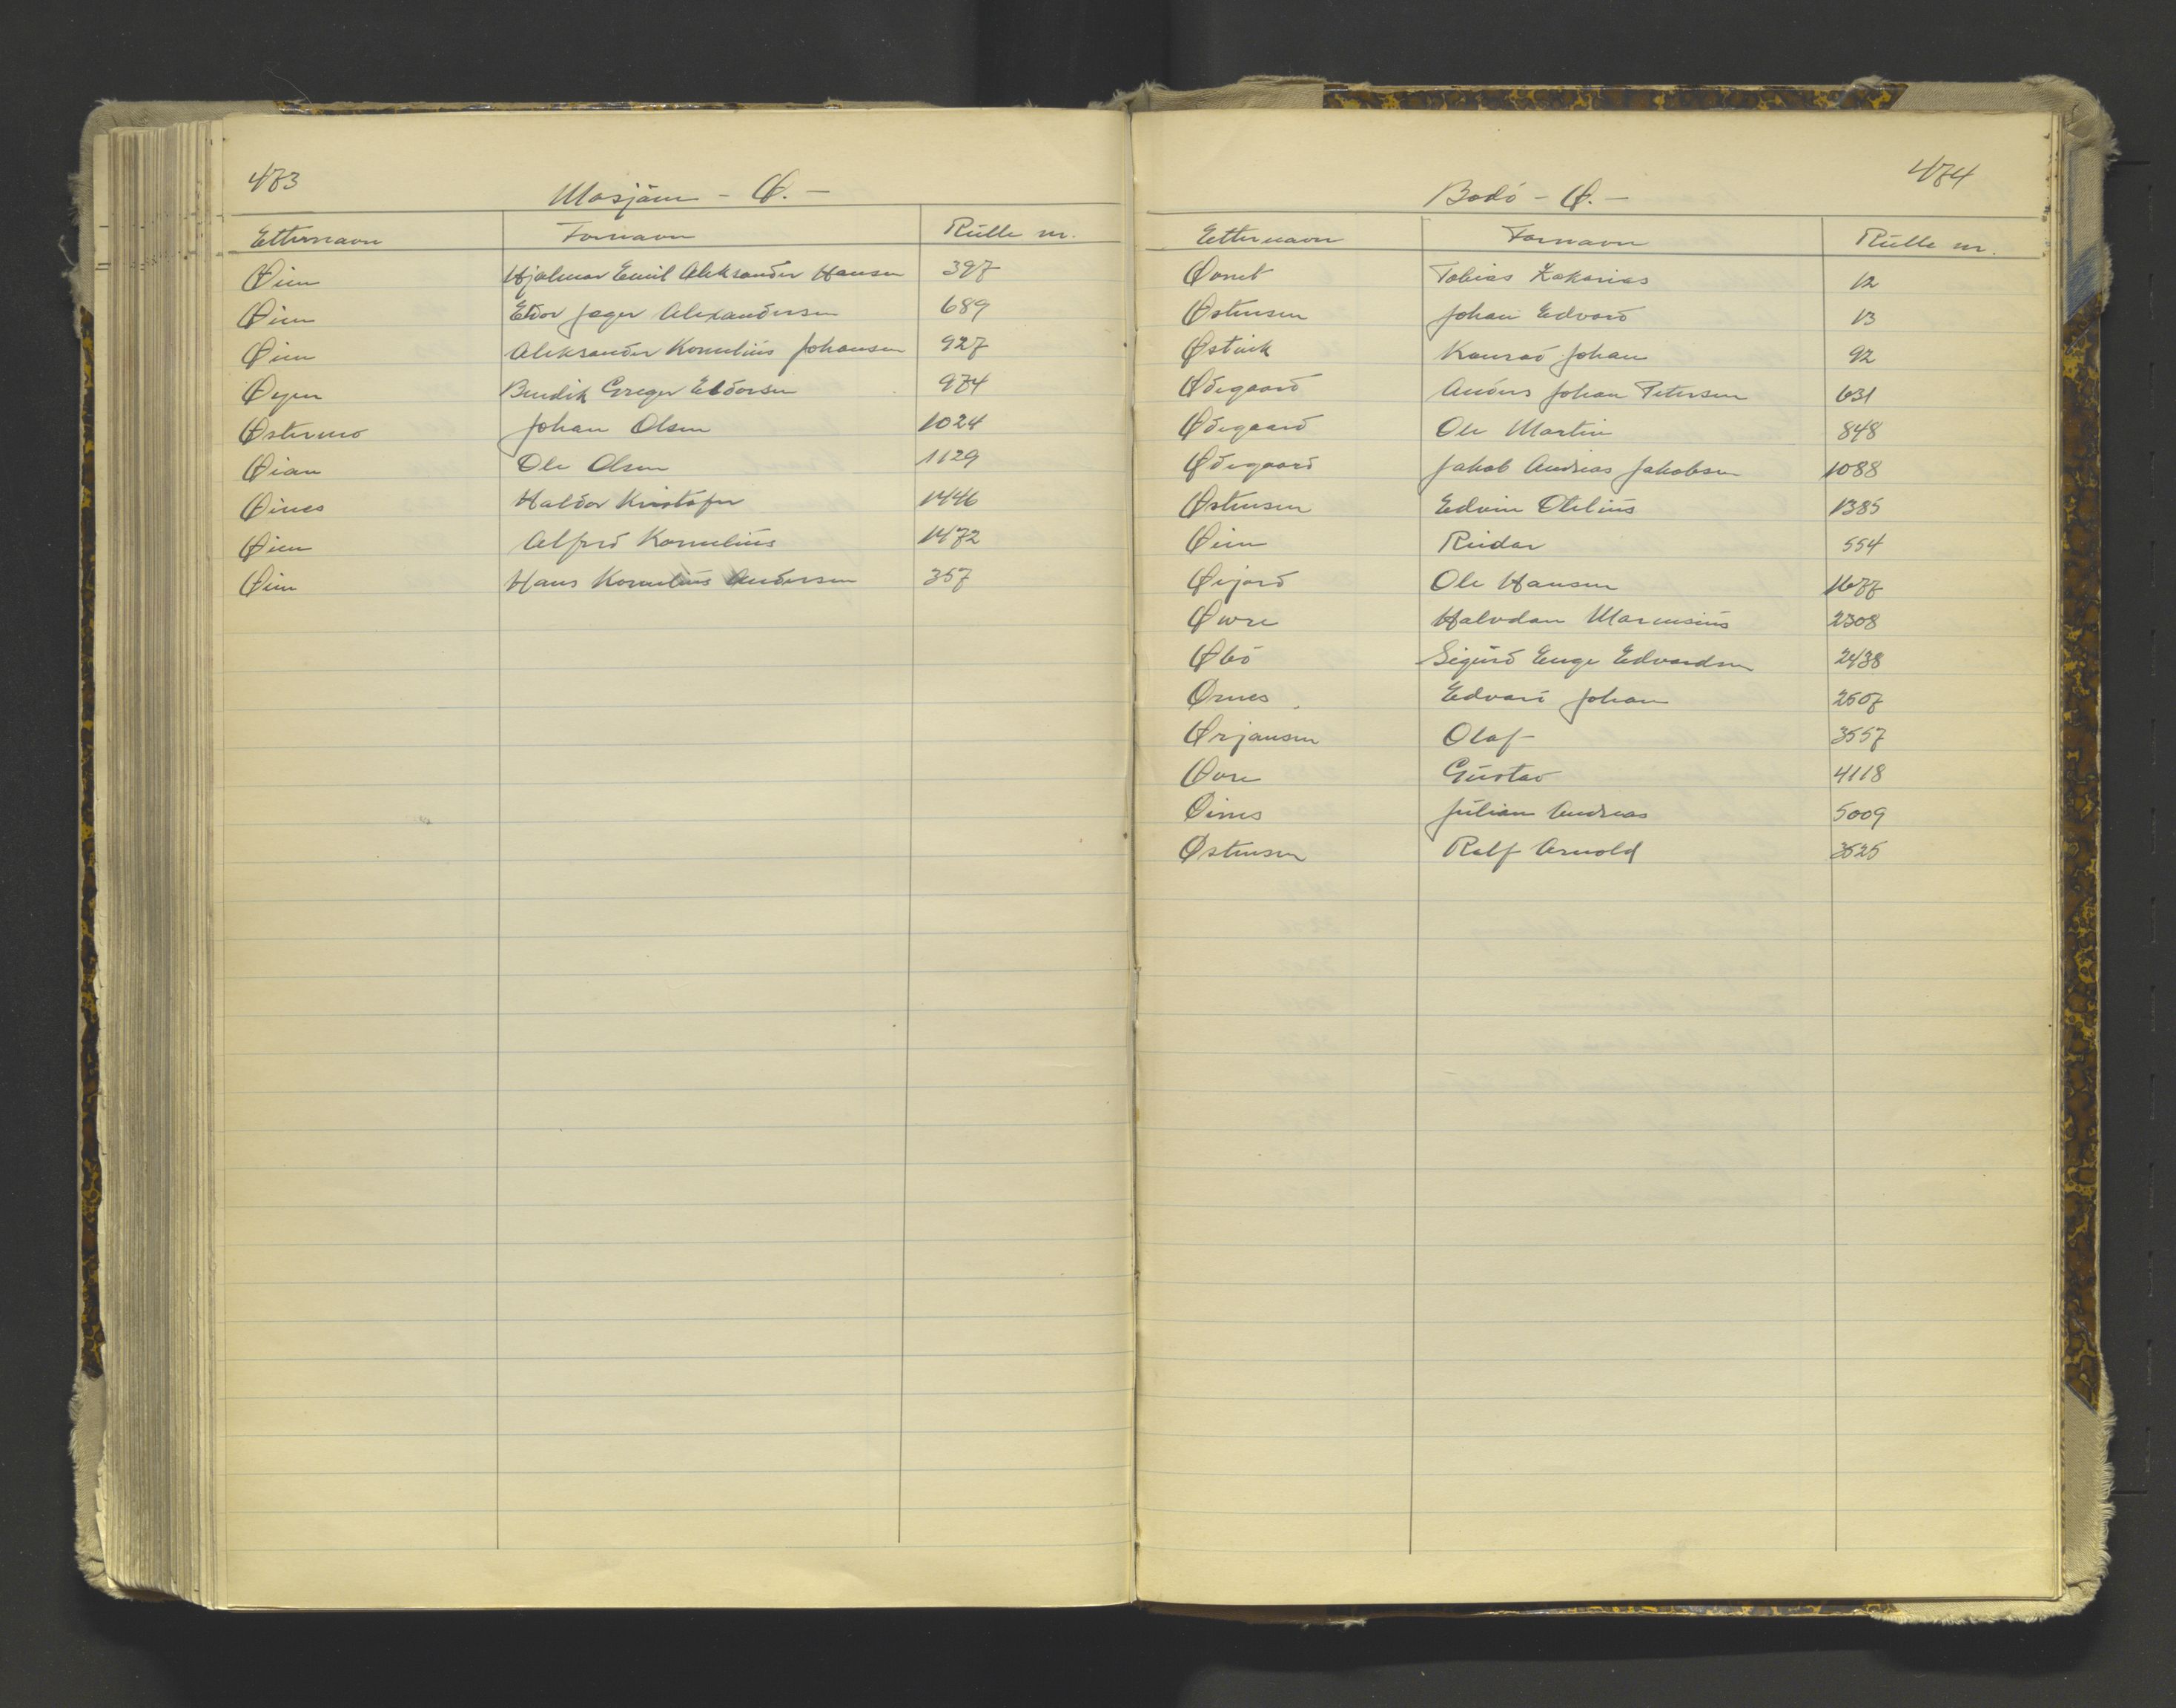 473
Mosjøen - Ø. -
Etternavn Fornavn Rulle nr.
Øien Hjalmar Emil Aleksander Hansen 397
Øien Eldor Jager Alexandersen 689
Øien Aleksander Kornelius Johansen 927
Øyen Bendik Greger Eldorsen 974
Østermo Johan Olsen 1024
Øian Ole Olsen 1129
Øines Haldor Kristofer 1446
Øien Alfred Kornelius 1472
Øien Hans Kornelius Andersen 357
474
Bodø - Ø. -
Etternavn Fornavn Rulle nr.
Tobias Zakarias 12
Østensen Johan Edvard 13
Østvik Konrad Johan 92
Ødegaard Anders Johan Petersen 631
Ødegaard Ole Martin 848
Ødegaard Jakob Andreas Jakobsen 1088
Østensen Edvin Otelius 1385
Øien Reidar 554
Øijord Ole Hansen 1677
Øwre Halvdan 2308
Øbø Sigurd Enge Edvardsen 2438
Ørnes Edvard Johan 2507
Ørjansen Olaf 3557
Øvre Gustav 4118
Øines Julian Andreas 5009
Østensen Ralf Arnold 3525